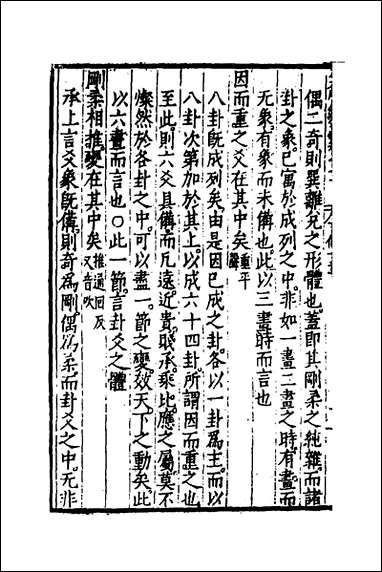 偶二奇則巽離兌之形體也蓋即其剛柔之純雜而諸
卦之象已寓於成列之中非如一畫二畫之時有畫而
无象有象而未備也此以三畫時而言也
因而重之爻在其中矣重平聲
八卦既成列矣由是因已成之卦各以一卦為主而以
八卦次第加於其上以成六十四卦所謂因而重之也
至此則六爻具備而凡遠近貴賤承乘比應之屬莫不
燦然於各卦之中可以盡一節之變效天下之動矣此
以六畫而言也○此一節言卦爻之體
剛柔相推變在其中矣推通回反又音吹
承上言爻象既備則奇為剛偶為柔而卦爻之中无非